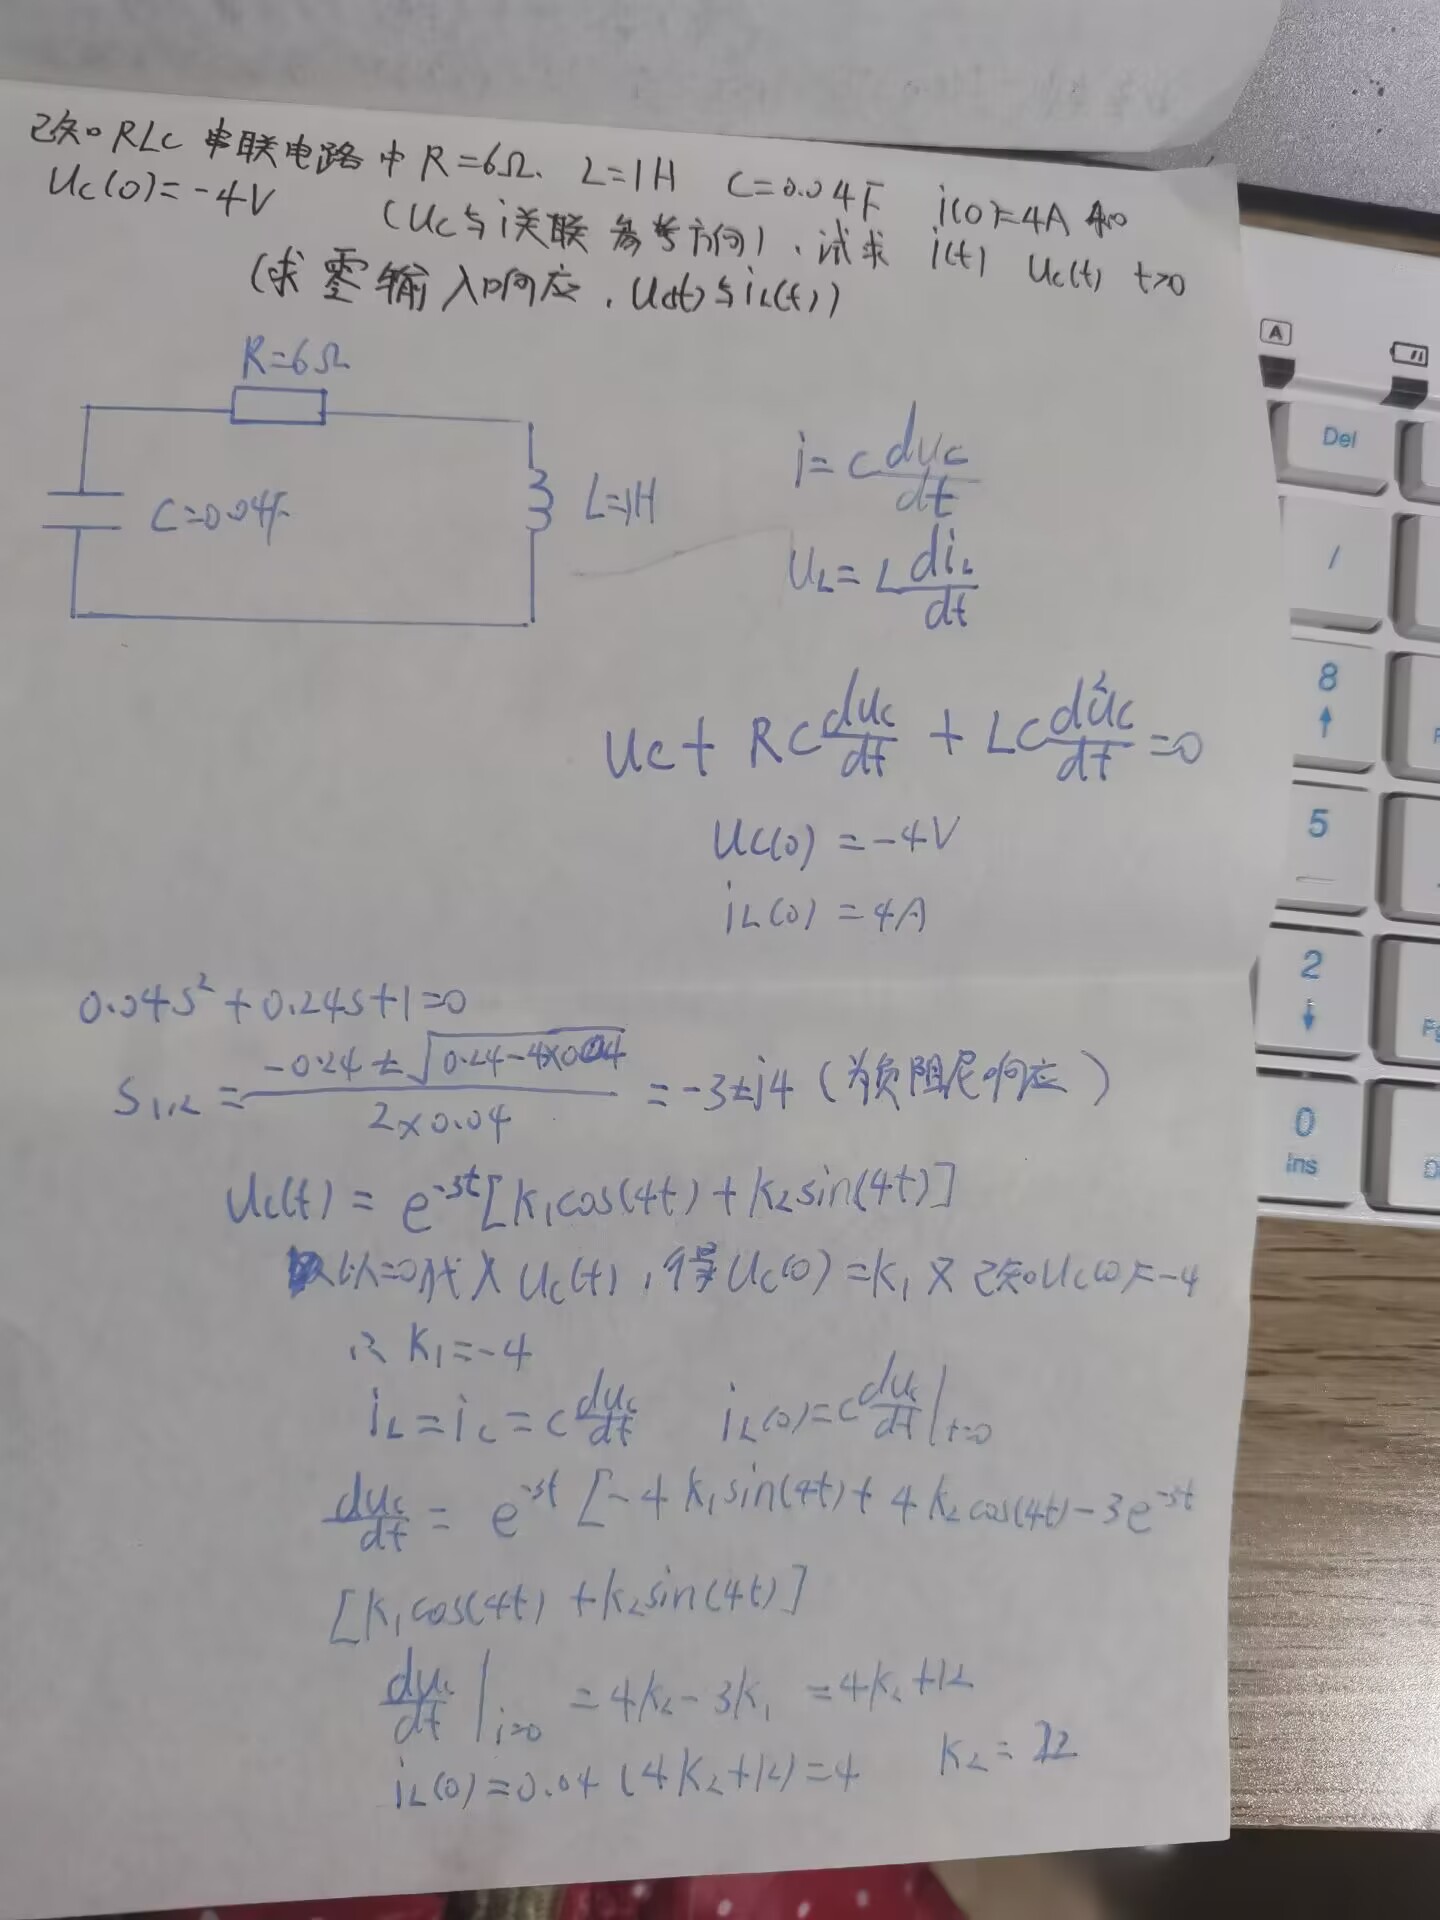 已知 RLC 串联电路中 R=6Ω、 L=1H C=0.04F i(0)=4A 和
Uc(0)=-4V (Uc与i关联参考方向)、试求 i(t) Uc(t) t>0
(求零输入响应, Uc(t)与iL(t))
R=6Ω
C=0.04F
L=1H
i=C duc/dt
UL=L diL/dt
Uc+ RC duc/dt + LC d²uc/dt =0
Uc(0) =-4V
iL(0) =4A
0.04S²+0.24S+1=0
S1,2 = (-0.24±√(0.24-4×0.04))/(2×0.04) = -3±j4 (为负阻尼响应)
Uc(t) = e^-3t[K1cos(4t)+K2sin(4t)]
=0代入Uc(t),得Uc(0)=K1 又已知Uc(0)=-4
∴ K1=-4
iL=ic=C duc/dt iL(0)=C duc/dt|t=0
duc/dt = e^-3t [-4K1sin(4t)+4K2cos(4t)-3e^-3t
[K1cos(4t)+K2sin(4t)]
duc/dt|i=0 =4K2-3K1 =4K2+12
iL(0)=0.04(4K2+12)=4 K2=22
A
Del
/
8
↑
5
2
↓
0
Ins